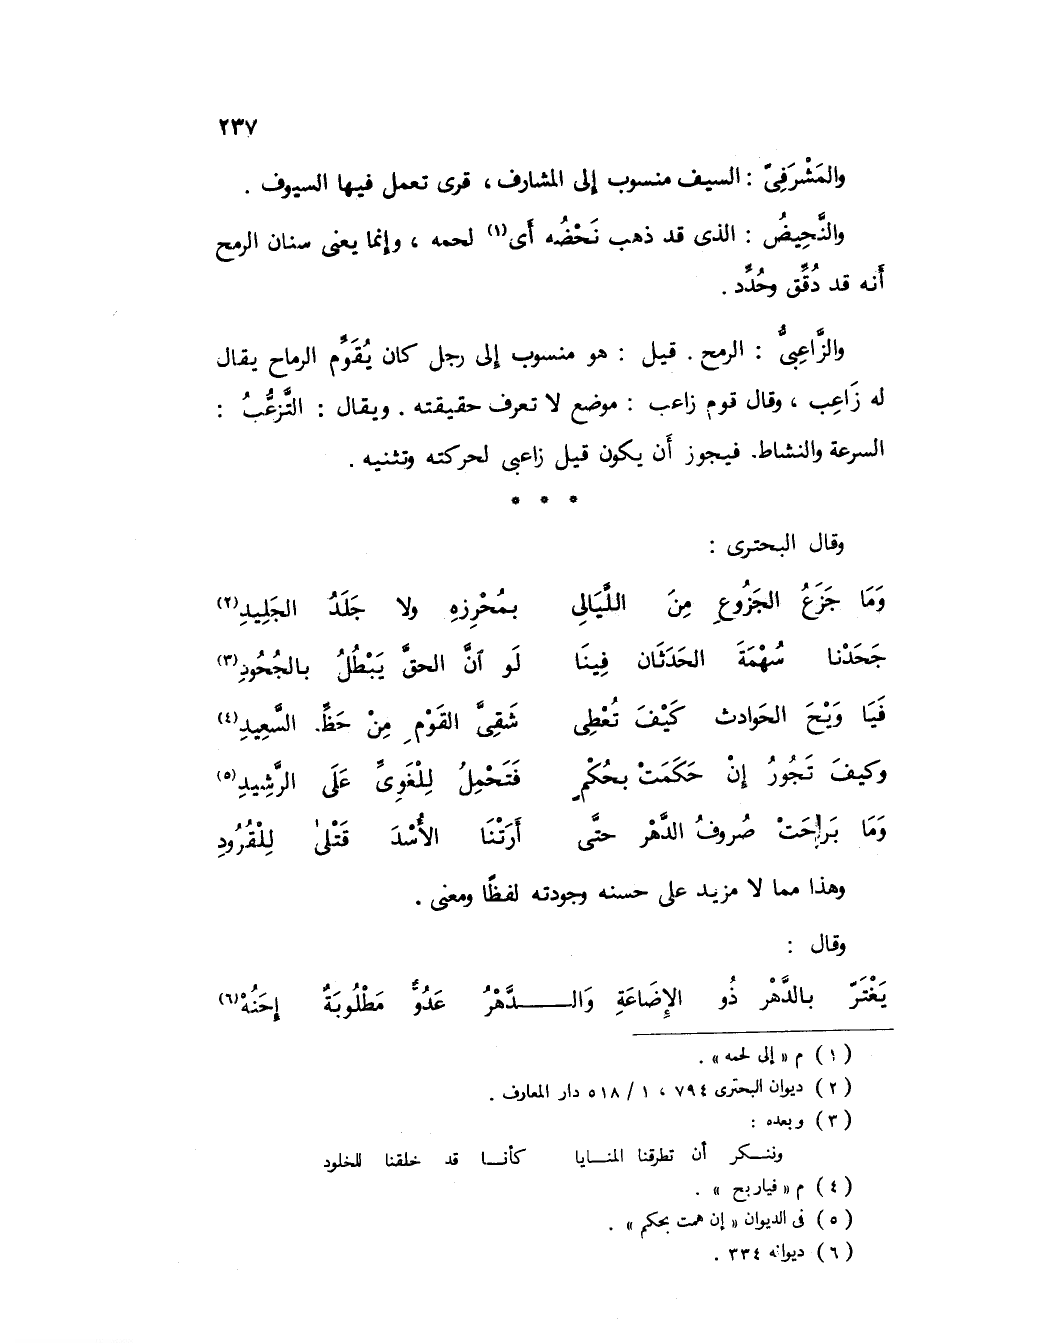 ٢٣٧
والمَشْرَفِىّ : السيف منسوب إلى المشارف ، قرى تعمل فيها السيوف .
والنَّحِيضُ : الذى قد ذهب نَحْضُه أى(١) لحمه ، وإنما يعنى سنان الرمح
أنه قد دُقِّق وحُدِّد .
والزَّاعِبىُّ : الرمح . قيل : هو منسوب إلى رجل كان يُقَوِّم الرماح يقال
له زَاعِب ، وقال قوم زاعب : موضع لا تعرف حقيقته . ويقال : التَّزعُّبُ :
السرعة والنشاط. فيجوز أن يكون قيل زاعبى لحركته وتثنيه .
* * *
وقال البحترى :
وَمَا جَزَعُ الجَزُوعِ مِنَ اللَّيَالِى بمُحْرِزِهِ ولا جَلَدُ الجَلِيدِ(٢)
جَحَدْنا سُهْمَةَ الحَدَثَان فِينَا لَو آنَّ الحقَّ يَبْطُلُ بالجُحُودِ(٣)
فَيَا وَيْحَ الحَوادث كَيْفَ تُعْطِى شَقِىَّ القَوْمِ مِنْ حَظِّ. السَّعِيدِ(٤)
وكيفَ تَجُورُ إنْ حَكَمَتْ بحُكْمٍ فَتَحْمِلُ لِلْغَوِىِّ عَلَى الرَّشِيدِ(٥)
وَمَا بَرِحَتْ صُروفُ الدَّهْر حتَّى أرَتْنَا الأُسْدَ قَتْلىٰ لِلْقُرُودِ
وهذا مما لا مزيد على حسنه وجودته لفظًا ومعنى .
وقال :
يَغْتَرّ بالدَّهْرِ ذُو الإضَاعَةِ وَالـــدَّهْرُ عَدُوٌّ مَطْلُوبَةٌ إحَنُهْ(٦)
(١) م « إلى لحمه » .
(٢) ديوان البحترى ٧٩٤ ، ١ / ٥١٨ دار المعارف .
(٣) وبعده :
وننـكر أن تطرقنا المنـايا كأنـا قد خلقنا للخلود
(٤) م « فياربح » .
(٥) فى الديوان « إن همت بحكم » .
(٦) ديوانه ٣٣٤ .